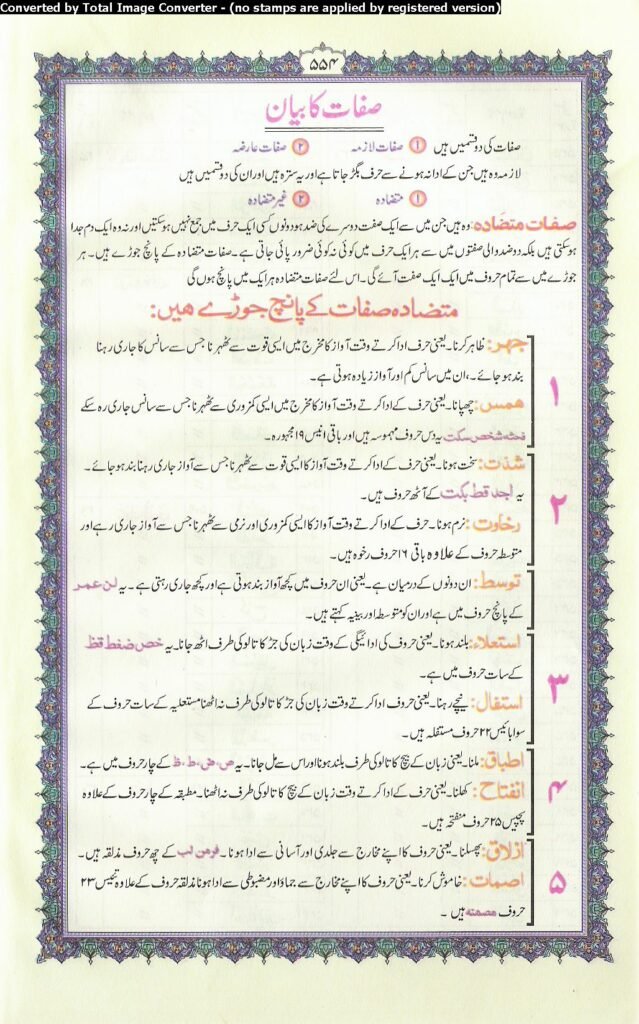 Converted by Total Image Converter - (no stamps are applied by registered version)
۵۵۴
صفات کا بیان
صفات کی دو قسمیں ہیں ۱ صفات لازمہ ۲ صفات عارضہ
لازمہ وہ ہیں جن کے ادا نہ ہونے سے حرف بگڑ جاتا ہے اور یہ سترہ ہیں اور ان کی دو قسمیں ہیں
۱ متضادہ ۲ غیر متضادہ
صفات متضادہ: وہ ہیں جن میں سے ایک صفت دوسرے کی ضد ہو دونوں کسی ایک حرف میں جمع نہیں ہو سکتیں اور نہ وہ ایک دم جدا
ہو سکتی ہیں بلکہ دو ضد والی صفتوں میں سے ہر ایک حرف میں کوئی نہ کوئی ضرور پائی جاتی ہے۔ صفات متضادہ کے پانچ جوڑے ہیں۔ ہر
جوڑے میں سے تمام حروف میں ایک ایک صفت آئے گی۔ اس لئے صفات متضادہ ہر ایک میں پانچ ہوں گی
متضادہ صفات کے پانچ جوڑے ھیں:
۱
جہر: ظاہر کرنا۔ یعنی حرف ادا کرتے وقت آواز کا مخرج میں ایسی قوت سے ٹھہرنا جس سے سانس کا جاری رہنا
بند ہو جائے۔، ان میں سانس کم اور آواز زیادہ ہوتی ہے۔
ھمس: چھپانا۔ یعنی حرف کے ادا کرتے وقت آواز کا مخرج میں ایسی کمزوری سے ٹھہرنا جس سے سانس جاری رہ سکے
فحثہ شخص سکت یہ دس حروف مہموسہ ہیں اور باقی انیس ۱۹ مجہورہ۔
۲
شدت: سخت ہونا۔ یعنی حرف کے ادا کرتے وقت آواز کا ایسی قوت سے ٹھہرنا جس سے آواز جاری رہنا بند ہو جائے۔
یہ اجد قط بکت کے آٹھ حروف ہیں۔
رخاوت: نرم ہونا۔ حرف کے ادا کرتے وقت آواز کا ایسی کمزوری اور نرمی سے ٹھہرنا جس سے آواز جاری رہے اور
متوسطہ حروف کے علاوہ باقی ۱۶ حروف رخوہ ہیں۔
توسط: ان دونوں کے درمیان ہے۔ یعنی ان حروف میں کچھ آواز بند ہوتی ہے اور کچھ جاری رہتی ہے۔ یہ لن عمر
کے پانچ حروف میں ہے اور ان کو متوسطہ اور بینیہ کہتے ہیں۔
۳
استعلاء: بلند ہونا۔ یعنی حروف کی ادائیگی کے وقت زبان کی جڑ کا تالو کی طرف اٹھ جانا۔ یہ خص ضغط قظ
کے سات حروف میں ہے۔
استفال: نیچے رہنا۔ یعنی حروف ادا کرتے وقت زبان کی جڑ کا تالو کی طرف نہ اٹھنا مستعلیہ کے سات حروف کے
سوا بائیس ۲۲ حروف مستفلہ ہیں۔
۴
اطباق: ملنا۔ یعنی زبان کے بیچ کا تالو کی طرف بلند ہونا اور اس سے مل جانا۔ یہ ص، ض، ط، ظ کے چار حروف میں ہے۔
انفتاح: کھلنا۔ یعنی حرف کے ادا کرتے وقت زبان کے بیچ کا تالو کی طرف نہ اٹھنا۔ مطبقہ کے چار حروف کے علاوہ
پچیس ۲۵ حروف منفتحہ ہیں۔
۵
ازلاق: پھسلنا۔ یعنی حروف کا اپنے مخارج سے جلدی اور آسانی سے ادا ہونا۔ فرمن لب کے چھ حروف مذلقہ ہیں۔
اصمات: خاموش کرنا۔ یعنی حروف کا اپنے مخارج سے جماؤ اور مضبوطی سے ادا ہونا مذلقہ حروف کے علاوہ تئیس ۲۳
حروف مصمتہ ہیں۔